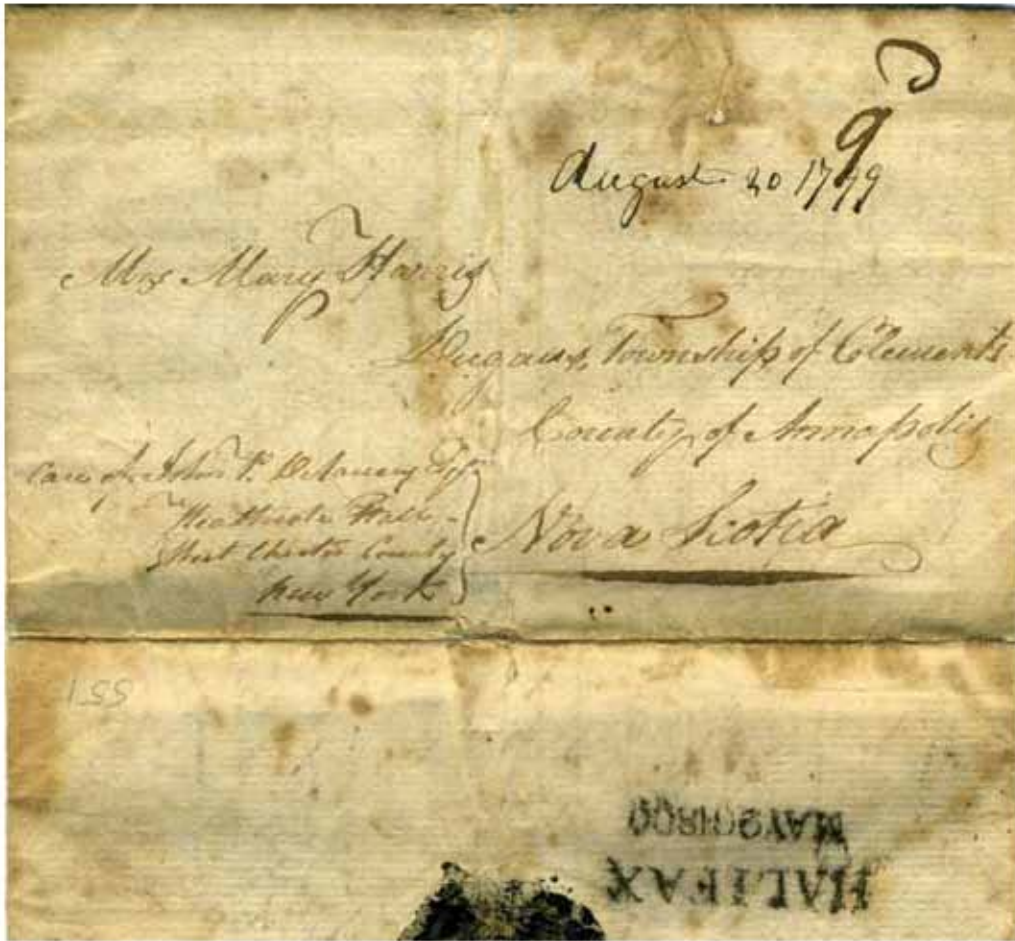 9d
August 20 1799
Mrs Mary Harris
Township of Clements
County of Annapolis
Nova Scotia
care of John P. Delancey Esqr
Heathcote Hall
West Chester County
New York
HALIFAX